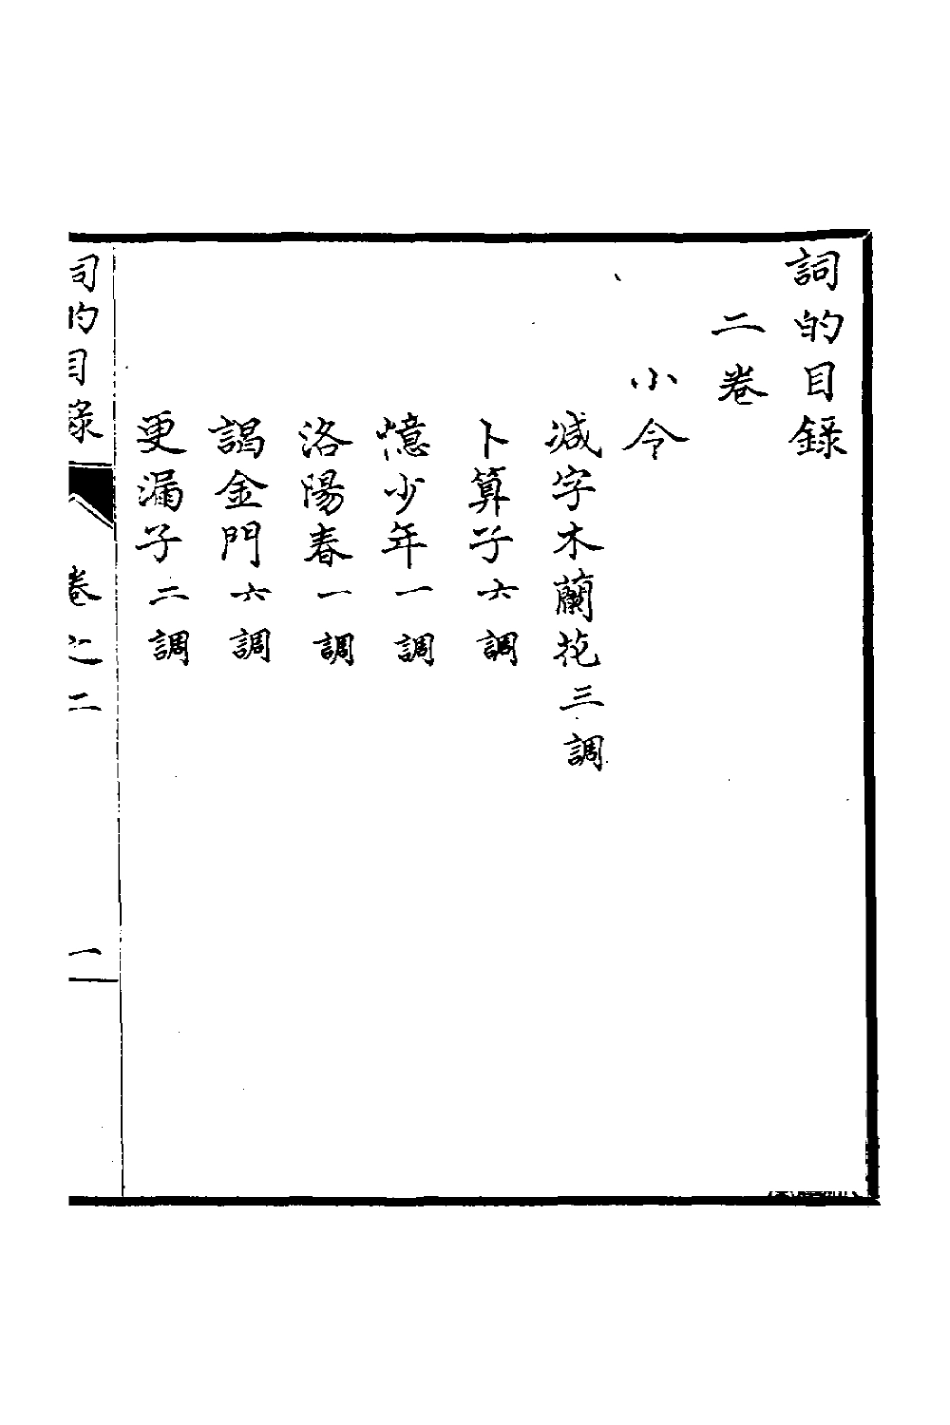 詞的目錄
二卷
小令
減字木蘭花三調
卜算子六調
憶少年一調
洛陽春一調
謁金門六調
更漏子二調
詞的目錄 卷之二 一